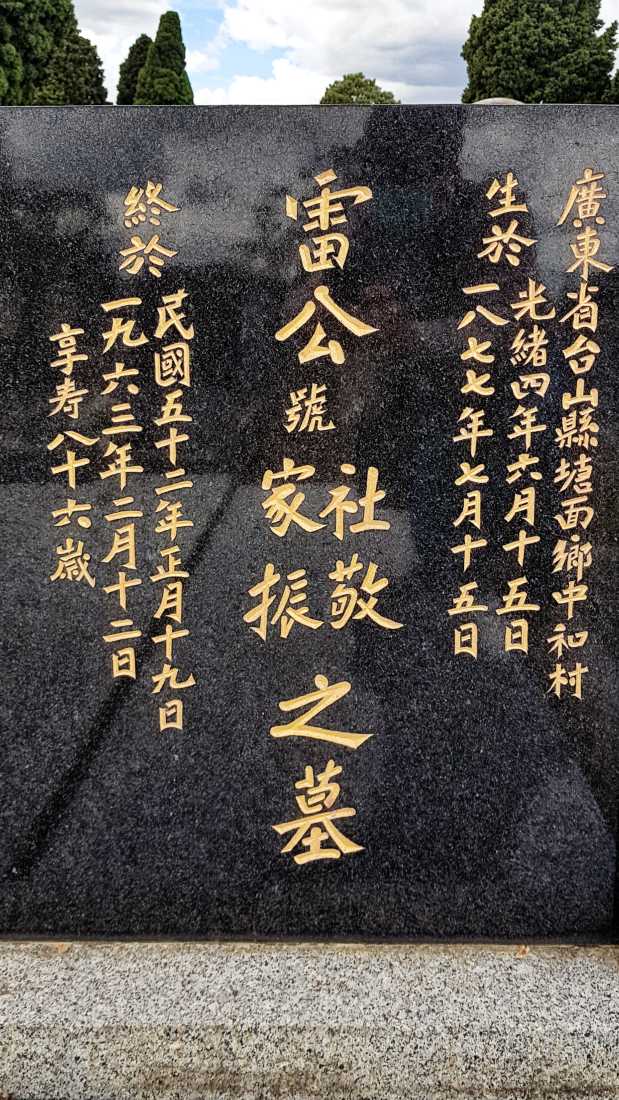 廣東省台山縣塘面鄉中和村
生於
光緒四年六月十五日
一八七七年七月十五日
雷公號
社敬
家振
之墓
終於
民國五十二年正月十九日
一九六三年二月十二日
享寿八十六歲